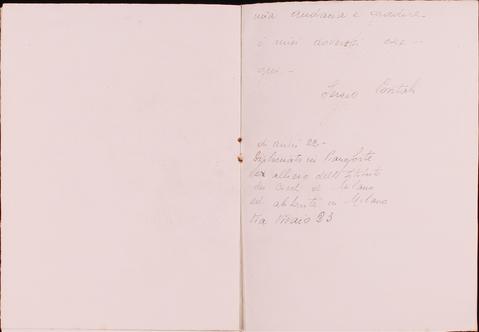 mia audacia e gradire
i miei doverosi osse-
qui. -
Sergio
di anni 22 -
Diplomato in Pianoforte
ex allievo dell'Istituto
dei Ciechi di Milano
ed abitante in Milano
Via Vivaio 23